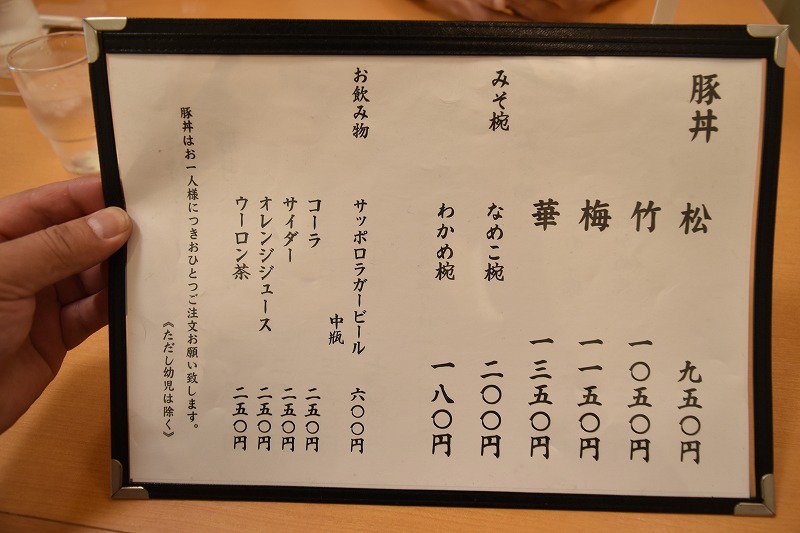 豚丼
松 九五〇円
竹 一〇五〇円
梅 一一五〇円
華 一三五〇円
みそ椀
なめこ椀 二〇〇円
わかめ椀 一八〇円
お飲み物
サッポロラガービール 六〇〇円
中瓶
コーラ 二五〇円
サイダー 二五〇円
オレンジジュース 二五〇円
ウーロン茶 二五〇円
豚丼はお一人様につきおひとつご注文お願い致します。
《ただし幼児は除く》